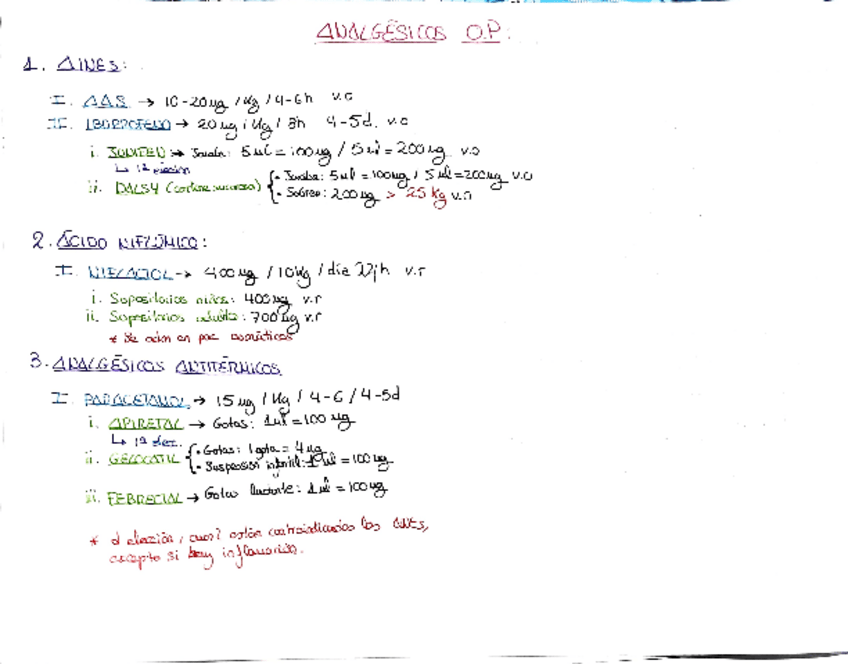 ANALGÉSICOS O.P:
1. AINES:
I. AAS → 10-20mg/Kg/4-6h v.o
II. IBUPROFENO → 20mg/Kg/8h 4-5d. v.o
i. → Jarabe: 5ml=100mg / 5ml=200mg v.o
↳ 1ª elección
ii. DALSY • Jarabe: 5ml=100mg / 5ml=200mg v.o
• Sobres: 200mg > 25Kg v.o
2. ÁCIDO NIFLÚMICO:
I. NIFLACTOL → 400mg / 10Kg / día v.r
i. Supositorios niños: 400mg v.r
ii. Supositorios adultos: 700mg v.r
* en pac. asmáticos
3. ANALGÉSICOS ANTITÉRMICOS
I. PARACETAMOL → 15mg / Kg / 4-6 / 4-5d
i. APIRETAL → Gotas: 1ml=100mg
↳ 1ª elec.
ii. GELOCATIL • Gotas: 1gota=4mg
• Suspensión infantil: 1ml=100mg
iii. FEBRECTAL → Gotas : 1ml=100mg
* d elección, están contraindicados los AINES,
excepto si hay inflamación.